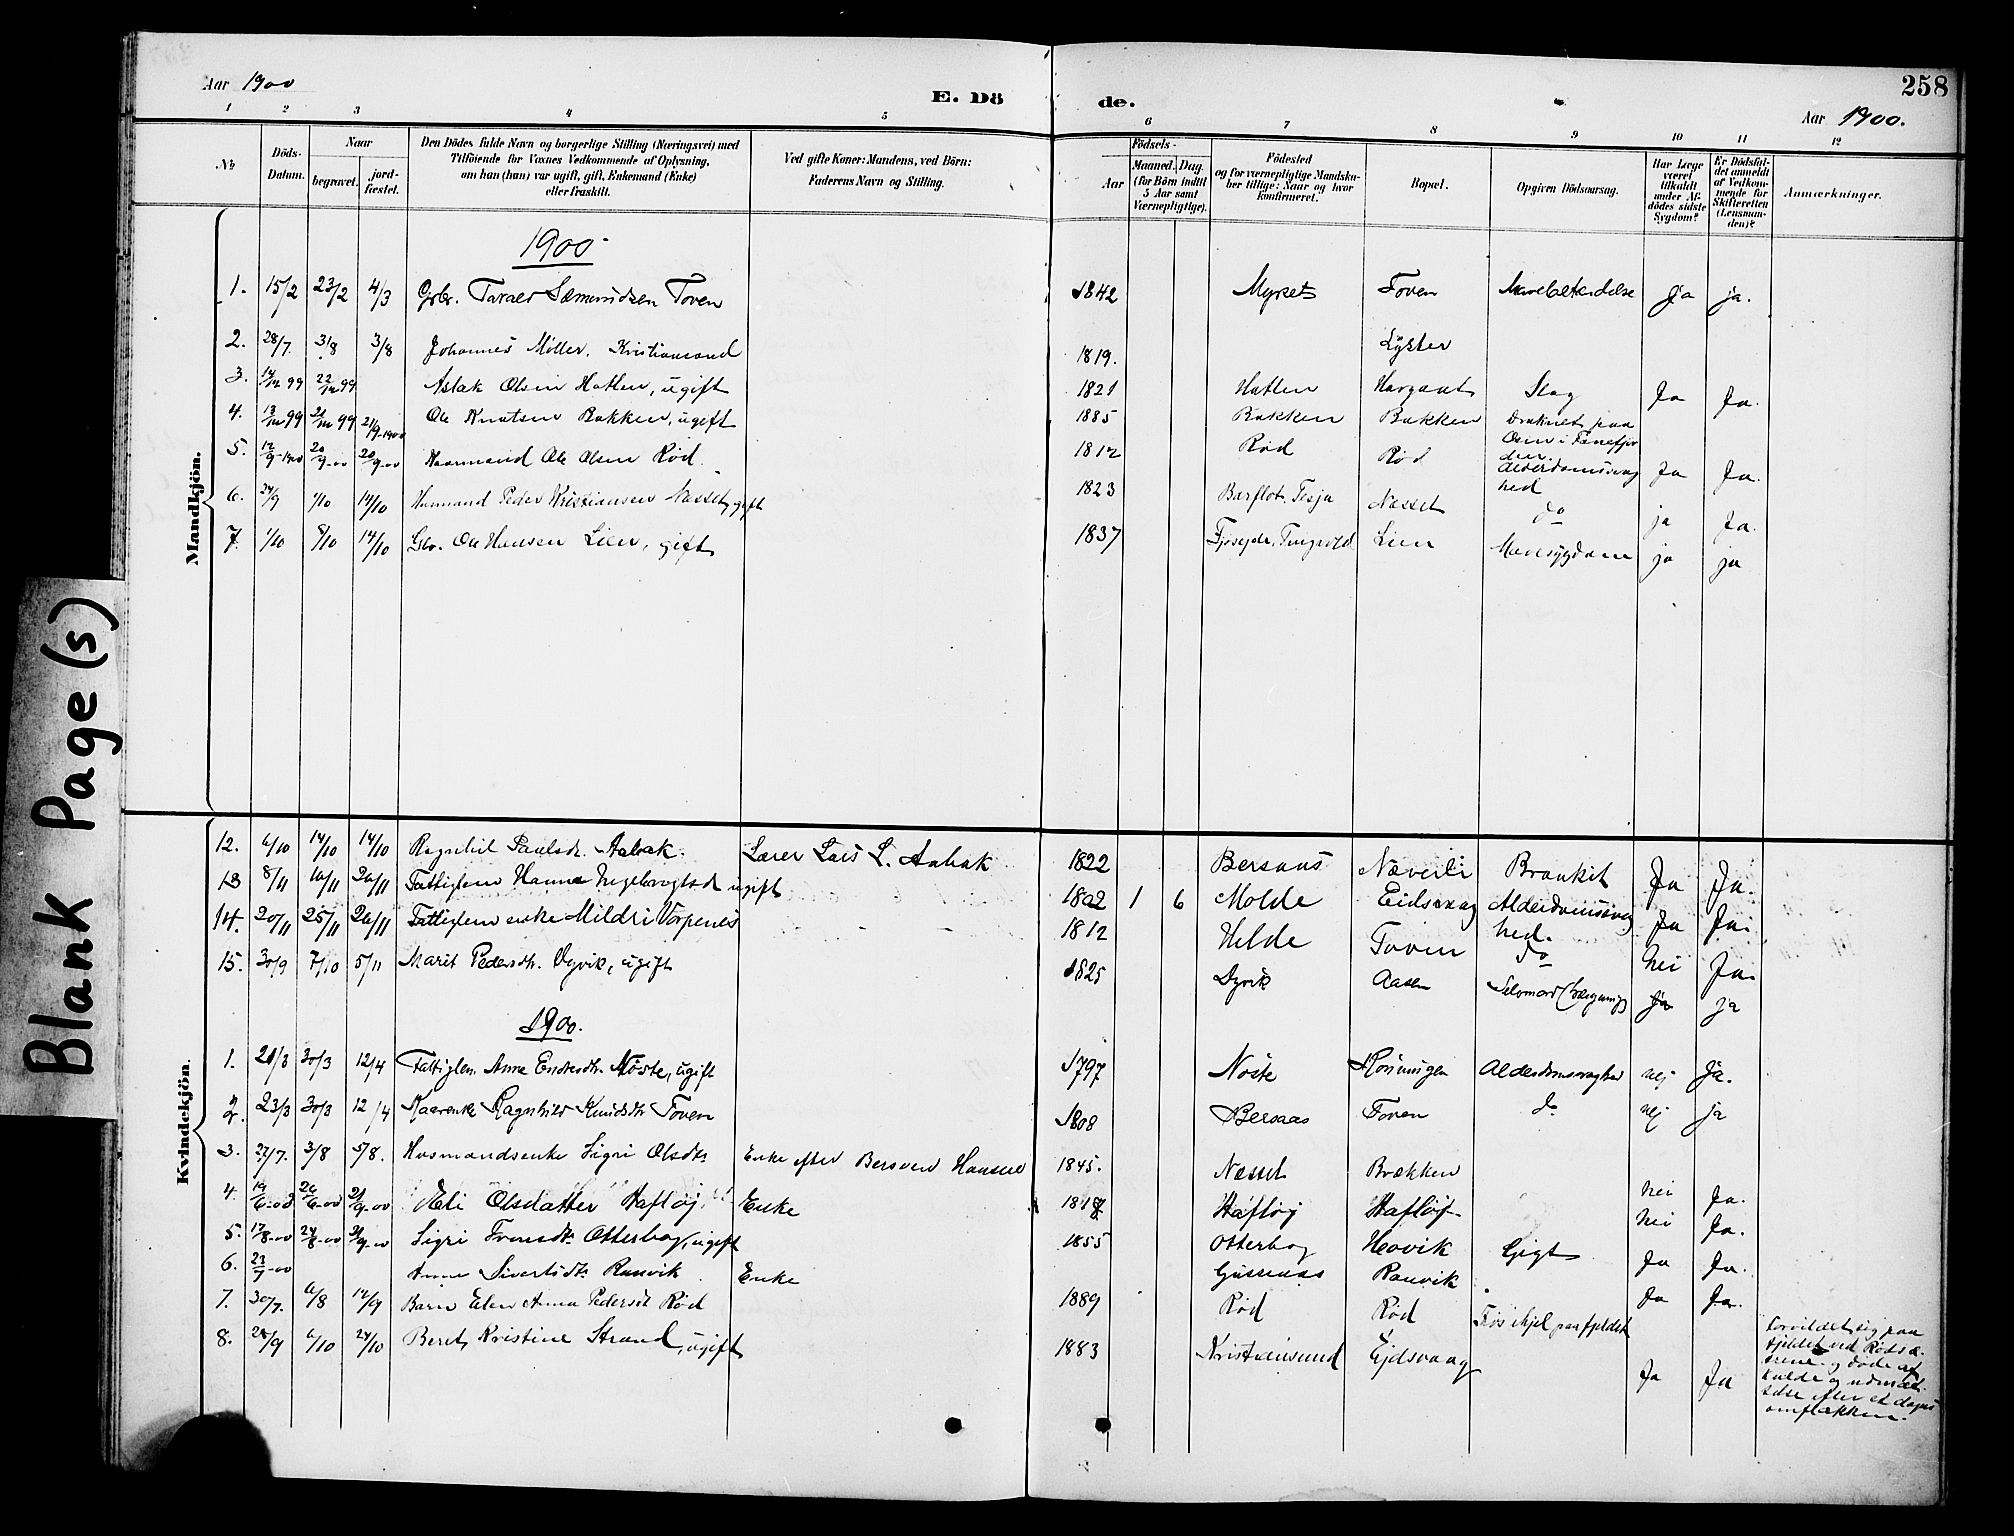 258
Aar 1900
E. Dö de.
Aar 1900.
1 2 3 4 5 6 7 8 9 10 11 12
No
Döds-Datum.
Naar
begravet.
jord-fæstet.
Den Dödes fulde Navn og borgerlige Stilling (Næringsvei) med
Tilföiende for Voxnes Vedkommende af Oplysning,
om han (hun) var ugift, gift, Enkemand (Enke)
eller fraskilt.
Ved gifte Koner: Mandens, ved Börn:
Faderens Navn og Stilling.
Födsels-
Aar
Maaned. Dag.
(for Börn indtil
5 Aar samt
Værnepligtige).
Födested
og for værnepligtige Mandska-
ber tillige: Naar og hvor
konfirmeret.
Bopæl.
Opgiven Dödsaarsag.
Har Læge
været
tilkaldt
under Af-
dödes sidste
Sygdom?
Er Dödsfal-
det anmeldt
af Vedkom-
mende for
Skifteretten
(Lensman-
den)?
Anmærkninger.
Mandkjön.
1900
1. 15/2 23/2 4/3 Gbr. Sæmundsen Toven 1842 Toven Ja ja.
2. 28/7. 3/8 3/8 Johannes Møller, Kristiansand 1819. Lyster
3. 14/12 99 22/12 99 Aslak Olsen Hatten, ugift 1821 Hatten Slag Ja Ja.
4. 13/12 99 21/12 99 21/9-1900 Ole Knutsen Bakken, ugift 1885 Bakken Bakken Druknet paa
5. 12/9-1900 20/9-00 20/9-00 Ole Olsen Rød 1812 Rød Rød Alderdomssvag
hed Ja Ja.
6. 24/9 1/10 14/10 Husmand Peder Kristiansen Nesset, gift 1823 Nesset do ja Ja.
7. 1/10 8/10 14/10 Gbr. Ole Hansen Lien, gift 1837 Tingvold Lien Mavesygdom ja ja
Kvindekjön.
12. 6/10 14/10 14/10 Ragnhil Paulsdr. Aabak. Lærer Lars L. Aabak 1822 Bersaas Næverli Ja Ja.
13 8/11 16/11 26/11 Fattiglem Hanna ugift 1802 1 6 Molde Eidsvaag Alderdomssvag
hed. Ja Ja.
14. 20/11 25/11 26/11 Fattiglem enke Mildri Vorpenes 1812 Hilde Toven do hei Ja.
15. 30/9 7/10 5/11 Marit Pedersdtr. Dyrvik, ugift 1825 Dyrvik Aasen Selvmord ja ja
1900.
1. 21/3 30/3 12/4 Fattiglem Anne Endresdtr. Nøste, ugift 1797 Nøste Alderdomssvaghed nej Ja.
2. 23/3 30/3 12/4 Kaarenke Ragnhild Knudsdtr Toven 1808 Bersaas Toven do nej ja
3. 27/7. 3/8 5/8. Husmandsenke Sigri Olsdtr Enke efter Bersven Hansen 1845. Nesset Brækken hei Ja.
4. 19/6-00 26/6-00 21/9-00 Eli Olsdatter Hafløj Enke 1817 Hafløj Hafløj hei Ja.
5. 17/8-00 24/8-00 21/9-00 Sigri Otterbog, ugift 1855 Otterbog Hovik Gigt Ja Ja.
6. 23/9-00 Anne Sivertsdtr. Ranvik Enke Gussiaas Ranvik Ja Ja.
7. 30/7. 6/8 12/9 Barn Elen Anna Pedersdt Rød 1889 Rød Rød Frøs ihjel paa fjeldet
8. 28/9 6/10 24/10 Beret Kristine Strand, ugift 1883 Kristiansund Ejdsvaag Ja Ja
Forvildet sig paa
fjeldet ved
og døde af
kulde og
efter et døgns
omflakken.
Blank Page(s)